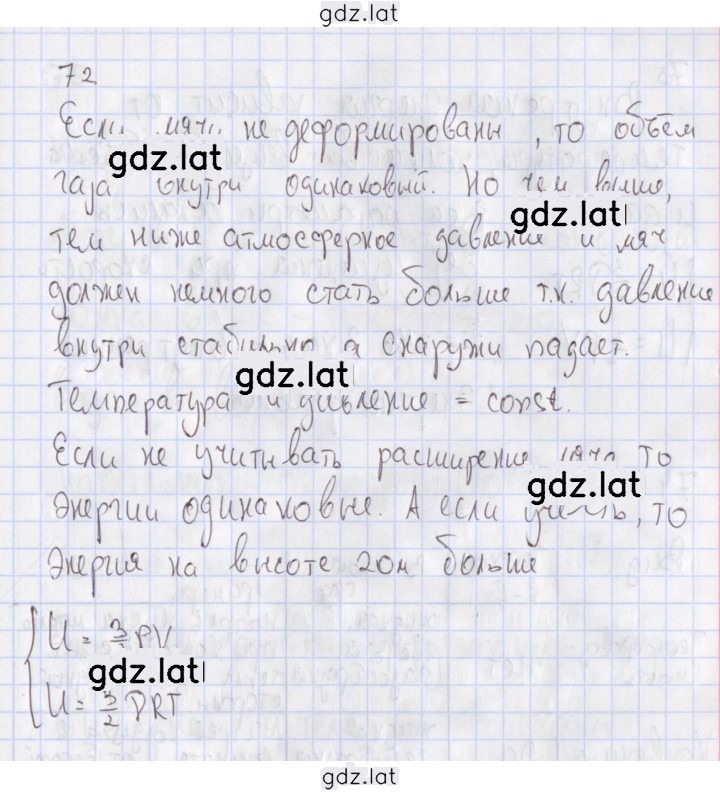 gdz.lat
72
Если мячи не деформированы, то объём
gdz.lat
газа внутри одинаковый. Но чем выше,
gdz.lat
тем ниже атмосферное давление и мяч
должен немного стать больше т.к. давление
внутри стабильно а снаружи падает.
gdz.lat
Температура и давление = const.
Если не учитывать расширение мяча то
gdz.lat
энергии одинаковые. А если учесть, то
энергия на высоте 20м больше
U = 3/2 PV
gdz.lat
U = 3/2 νRT
gdz.lat